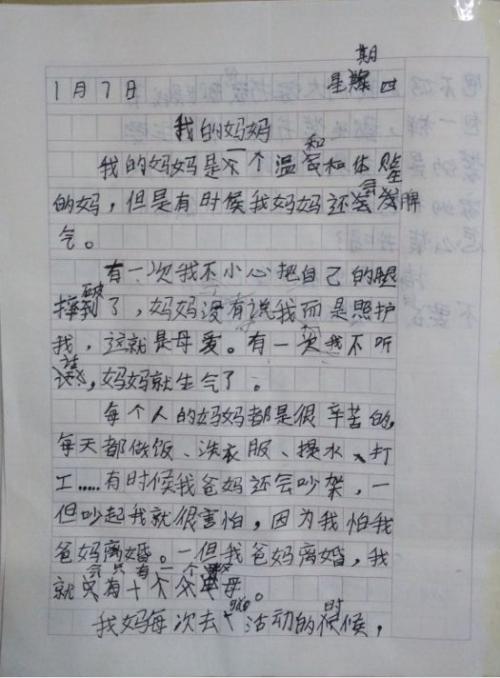 1月7日 星期四
我的妈妈
我的妈妈是一个温和和体贴
的妈,但是有时候我妈妈还会发脾
气。
有一次我不小心把自己的腿
摔破了,妈妈没有说我而是照护
我,这就是母爱。有一次我不听
话,妈妈就生气了。
每个人的妈妈都是很辛苦的,
每天都做饭、洗衣服、提水、打
工.....有时候我爸妈还会吵架,一
但吵起我就很害怕,因为我怕我
爸妈离婚。一但我爸妈离婚,我
就会只有一个父母。
我妈每次去活动的时候,